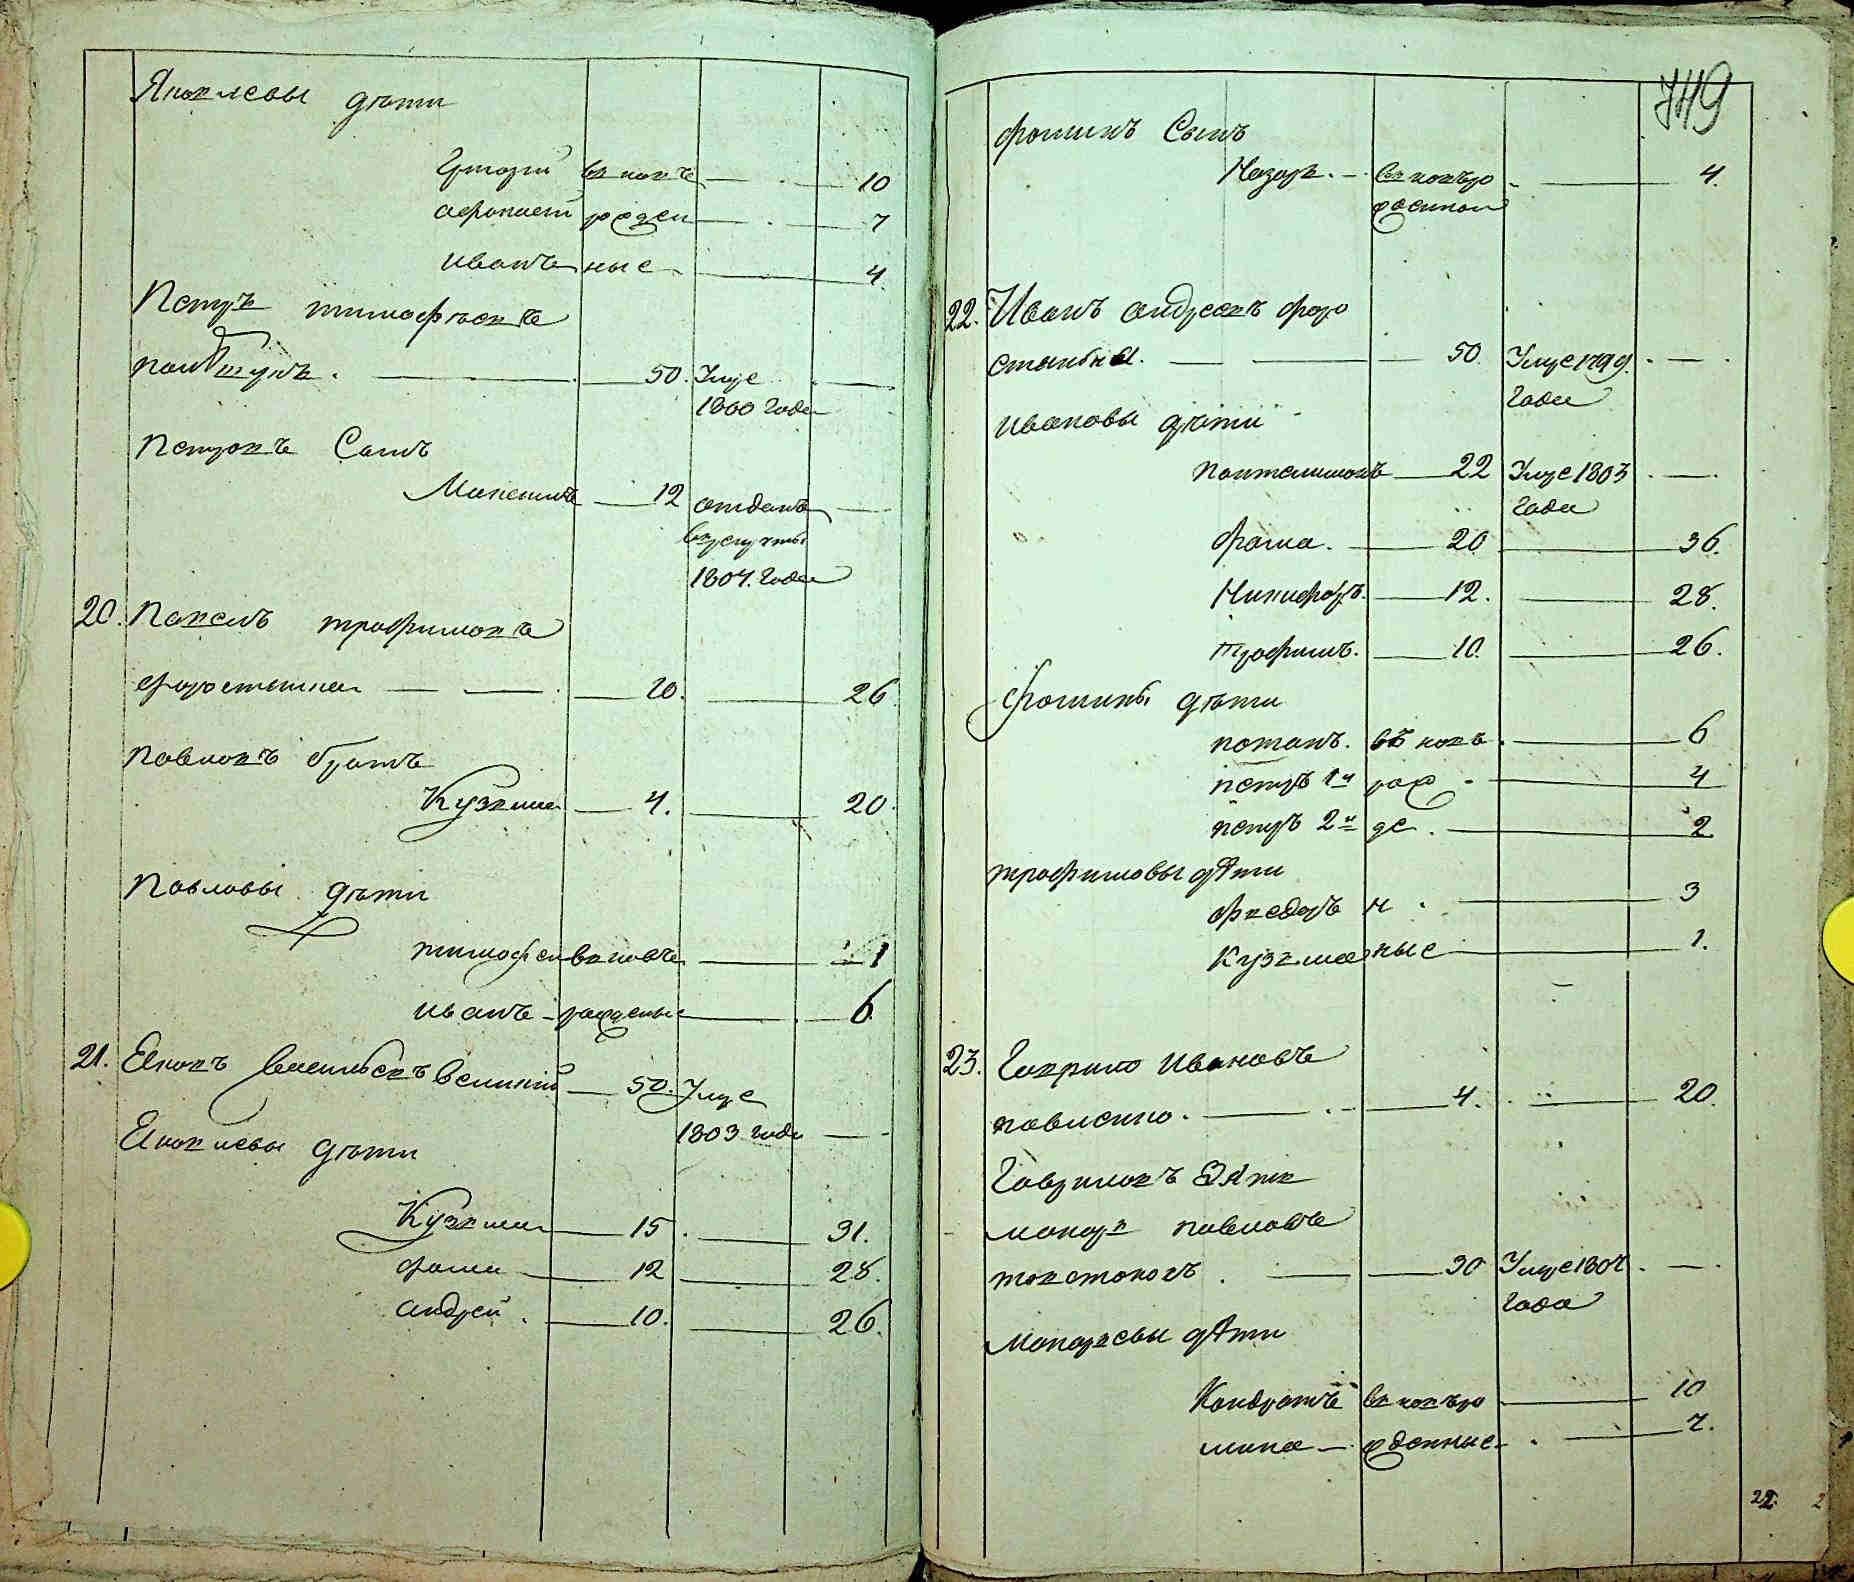 Яковлевы дѣти
Григорій вновь — 10
Афонасей рожден — 7
Иванъ ные — 4
Петръ тимофѣевъ
— 50. Умре —
1800 Года
Петровъ Сынъ
Максимъ — 12 отданъ —
врекруты
1804. Года
20. Павелъ трофимовъ
форостяная — 10. — 26
Павловъ братъ
Кузьма — 4. — 20.
Павловы дѣти
тимофей вновь — 1
иванъ рожденые — 6
21. Яковъ Васильевъ великій — 50. Умре
1803 года —
Яковлевы дѣти
Кузьма — 15. — 31.
фома — 12 — 28.
андрей. — 10. — 26.
749
фоминъ Сынъ
Назаръ. — вновьро — 4.
жденной
22. Иванъ андреевъ форо
стяный. — 50. Умре 1799. —
Года
ивановы дѣти
пантелимонъ — 22 Умре 1803 —
Года
фома. — 20 — 36.
Никифоръ. — 12. — 28.
трофимъ. — 10. — 26.
фомины дѣти
потапъ. вновь — 6
петръ 1й рож — 4
петръ 2й де. — 2
трофимовы дѣти
федоръ н — 3
Кузьма ные — 1.
23. Гаврило Ивановъ
павленко. — 4. — 20.
Гавриловъ Зять
макаръ павловъ
толстоногъ. — 30 Умре 1807. —
Года
Макаровы дѣти
Кондратъ вновьро — 10
мина — жденные. — 7.
22.